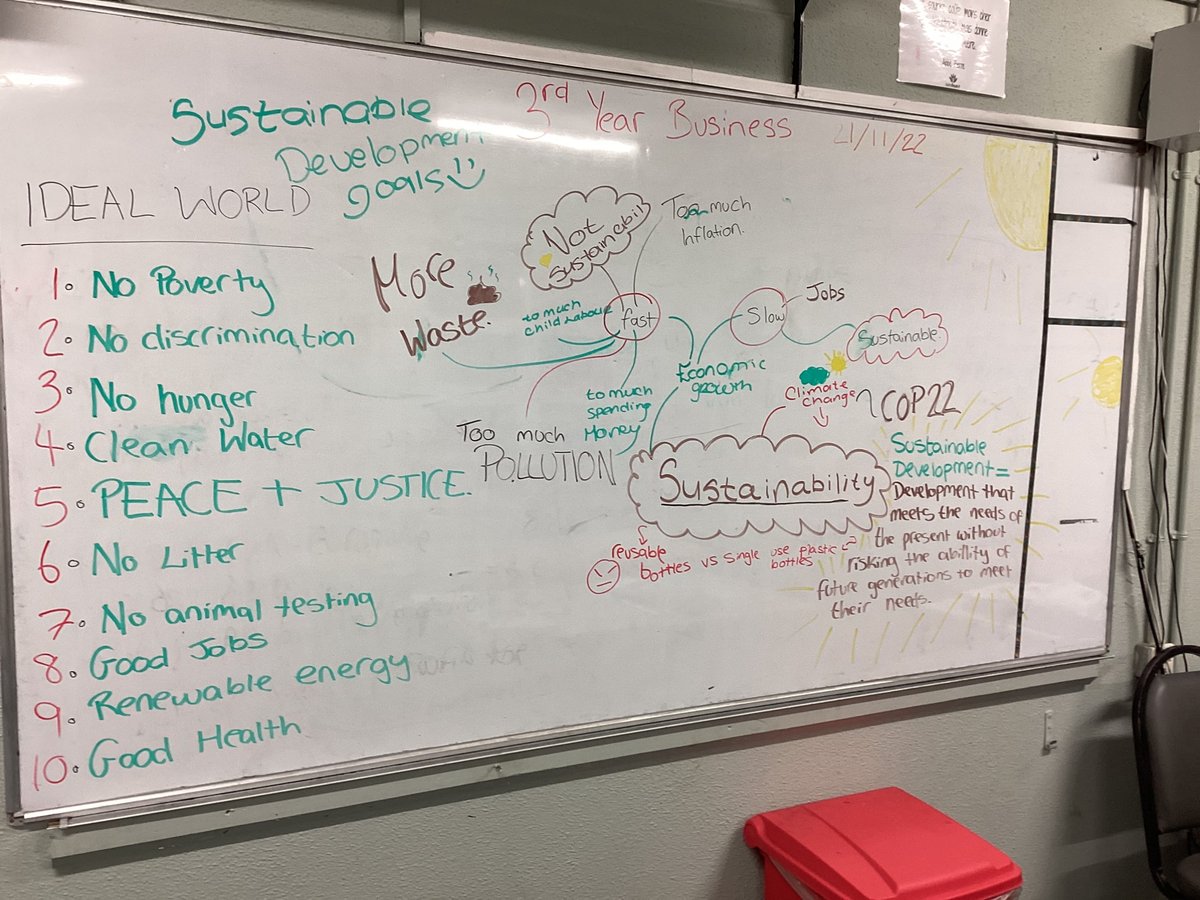 Sustainable
Development
goals
3rd Year Business
21/11/22
IDEAL WORLD
1. No Poverty
2. No discrimination
3. No hunger
4. Clean Water
5. PEACE + JUSTICE.
6. No Litter
7. No animal testing
8. Good Jobs
9. Renewable energy
10. Good Health
More
Waste.
Not
Sustainabil
Too much
Inflation.
to much
child Labour
fast
Slow
Jobs
Sustainable.
Economic
growth
to much
spending
Money
Too much
POLLUTION
Climate
Change
COP22
Sustainability
reusable
bottles vs single use plastic
bottles
Sustainable
Development =
Development that
meets the needs of
the present without
risking the abillity of
future generations to meet
their needs.